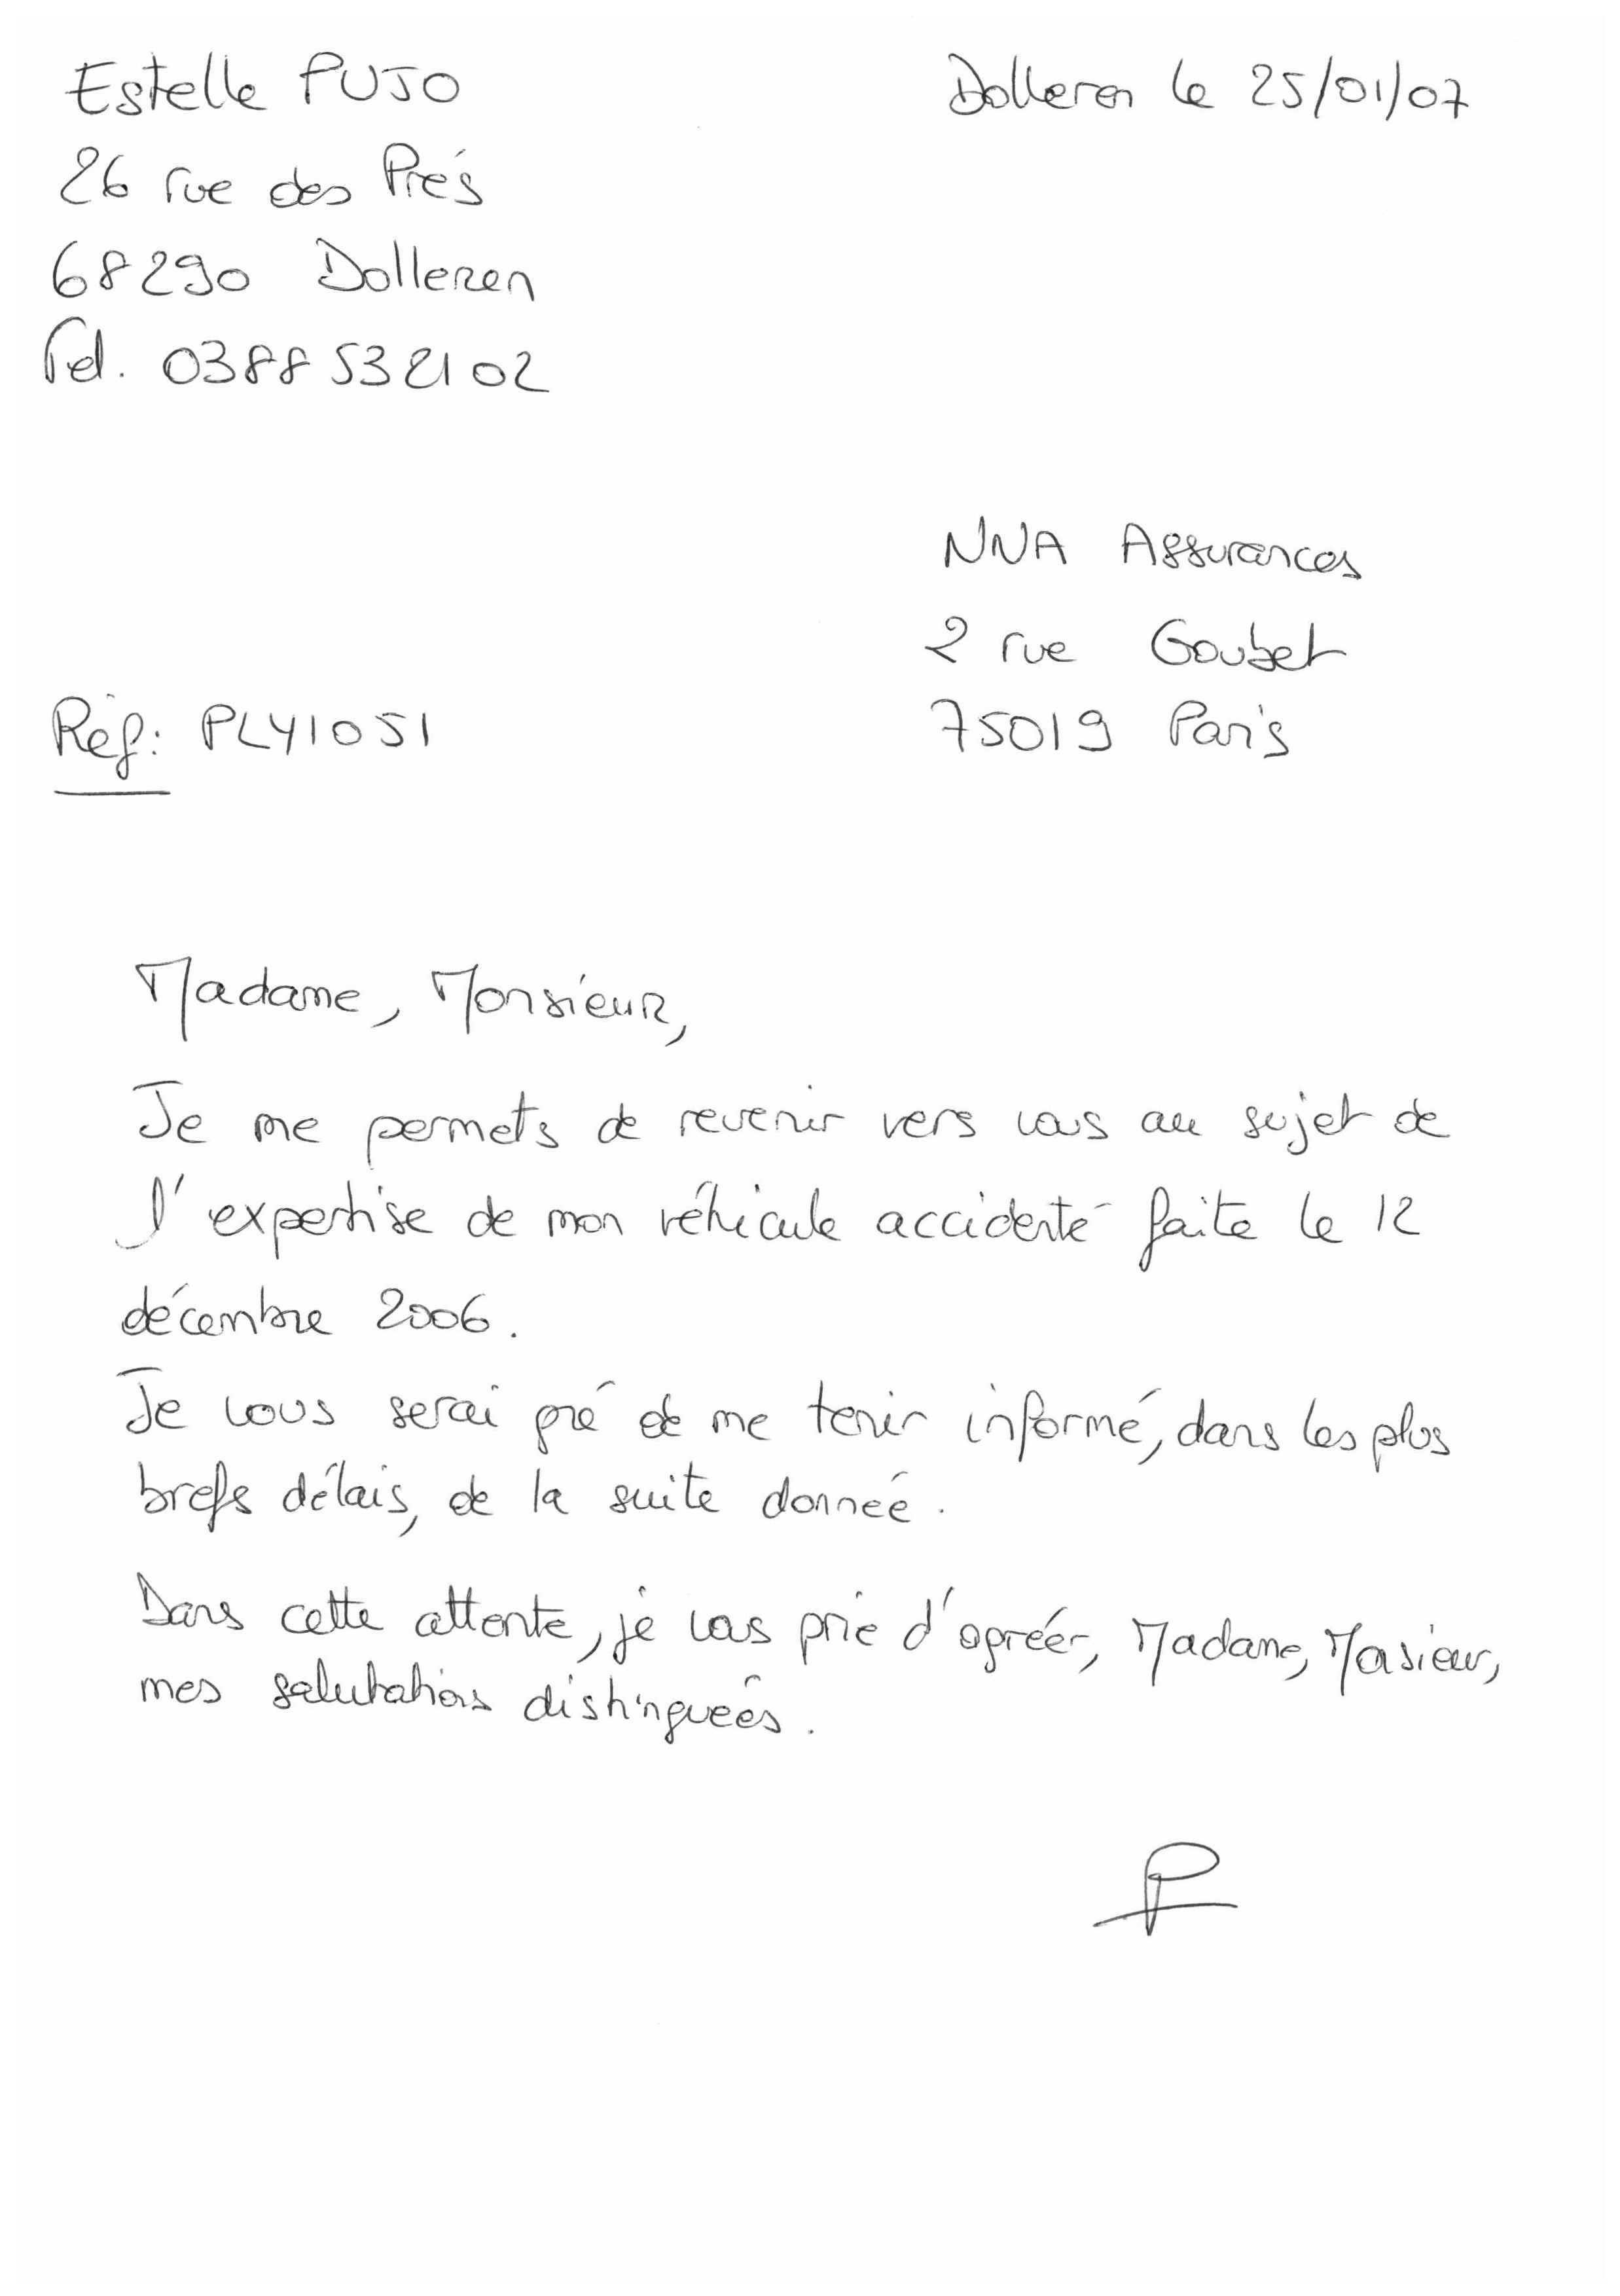 Estelle PUJO
Dolleren le 25/01/07
26 rue des Prés
68290 Dolleren
Tel. 0388532102
NNA Assurances
2 rue Goubet
75019 Paris
Réf: PLY1051
Madame, Monsieur,
Je me permets de revenir vers vous au sujet de
l'expertise de mon véhicule accidenté faite le 12
décembre 2006.
Je vous serai gré de me tenir informé, dans les plus
brefs délais, de la suite donnée.
Dans cette attente, je vous prie d'agréer, Madame, Monsieur,
mes salutations distinguées.